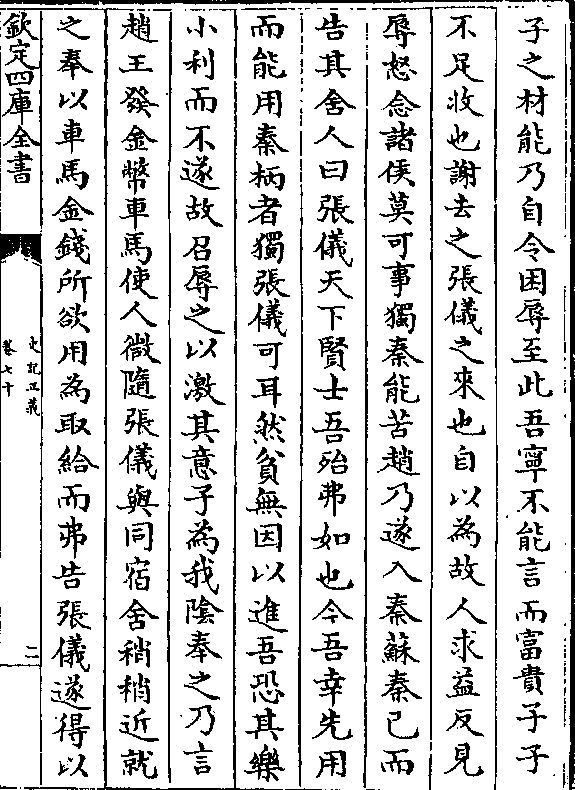 子之材能乃自令困辱至此吾寧不能言而富貴子子
不足收也謝去之張儀之來也自以為故人求益反見
辱怒念諸侯莫可事獨秦能苦趙乃遂入秦蘇秦已而
告其舍人曰張儀天下賢士吾殆弗如也今吾幸先用
而能用秦柄者獨張儀可耳然貧無因以進吾恐其樂
小利而不遂故召辱之以激其意子為我陰奉之乃言
趙王發金幣車馬使人微隨張儀與同宿舍稍稍近就
之奉以車馬金錢所欲用為取給而弗告張儀遂得以
欽定四庫全書
史記正義
卷七十
二